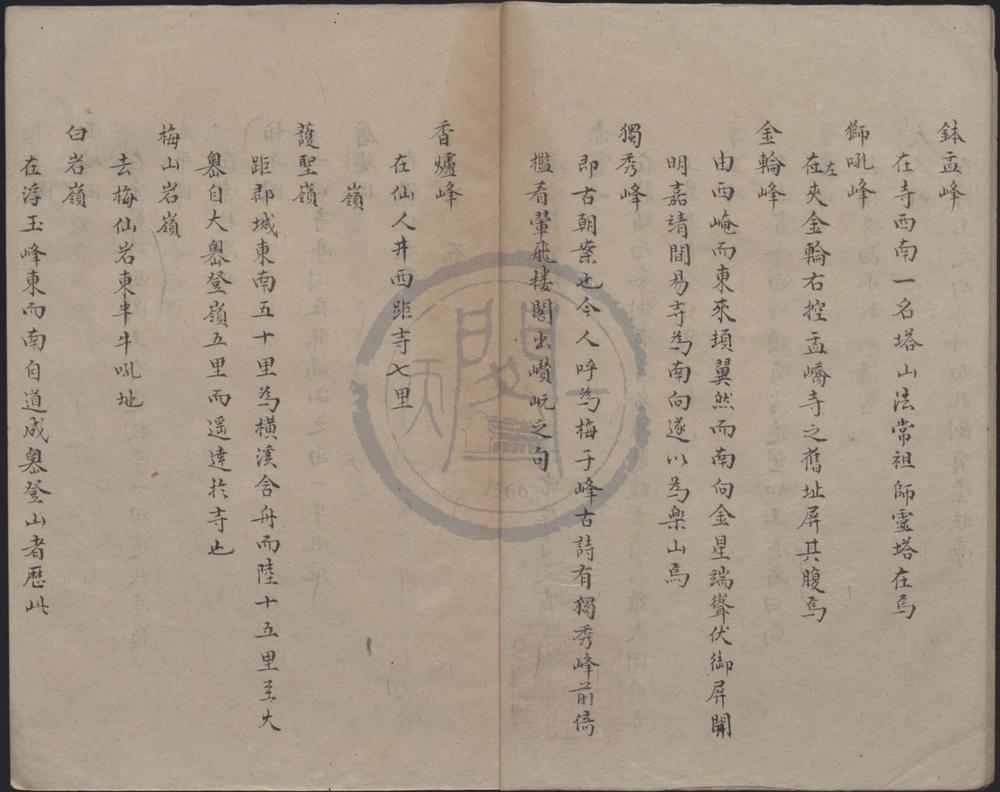 鉢盂峰
在寺西南一名塔山法常祖師靈塔在焉
獅吼峰
在左夾金輪右控盂嶠寺之舊址屏其腹焉
金輪峰
由西崦而東來頡翼然而南向金星端聳伏御屏開
明嘉靖間易寺為南向遂以為樂山焉
獨秀峰
即古朝案也今人呼為梅子峰古詩有獨秀峰前倚
檻看翬飛樓閣出巑岏之句
香爐峰
在仙人井西距寺七里
嶺
護聖嶺
距郡城東南五十里為橫溪舍舟而陸十五里至大
嶴自大嶴登嶺五里而遥達於寺也
梅山岩嶺
去梅仙岩東半牛吼地
白岩嶺
在浮玉峰東而南自道成嶴登山者歷此
1966